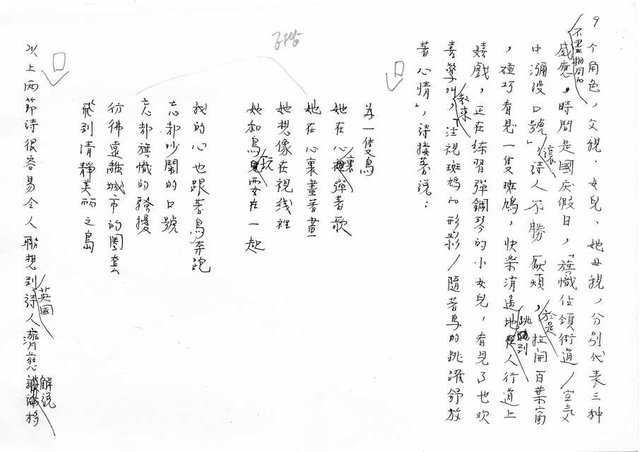 個角色,父親、女兒、她母親,分別代表三種
不盡相同的
感應,時間是國慶假日,「旗幟佔領街道/空氣
中瀰漫口號」,讓詩人不勝厭煩,於是拉開百葉窗
,碰巧看見一隻斑鳩,快樂消遙地跳到人行道上
嬉戲,正在練習彈鋼琴的小女兒,看見了也歡
喜學叫,起來「注視斑鳩的形影/隨著鳥的跳躍舒放
著心情」,詩接著說:
為一隻鳥
她在心裏彈著歌
她在心裏畫著畫
她想像在視線裡
她和鳥兒玩在一起
我的心也跟著鳥奔跑
忘卻吵鬧的口號
忘卻旗幟的騷擾
彷彿遠離城市的圈套
飛到清靜美麗之島
以上兩節詩很容易令人聯想到英國詩人濟慈解說